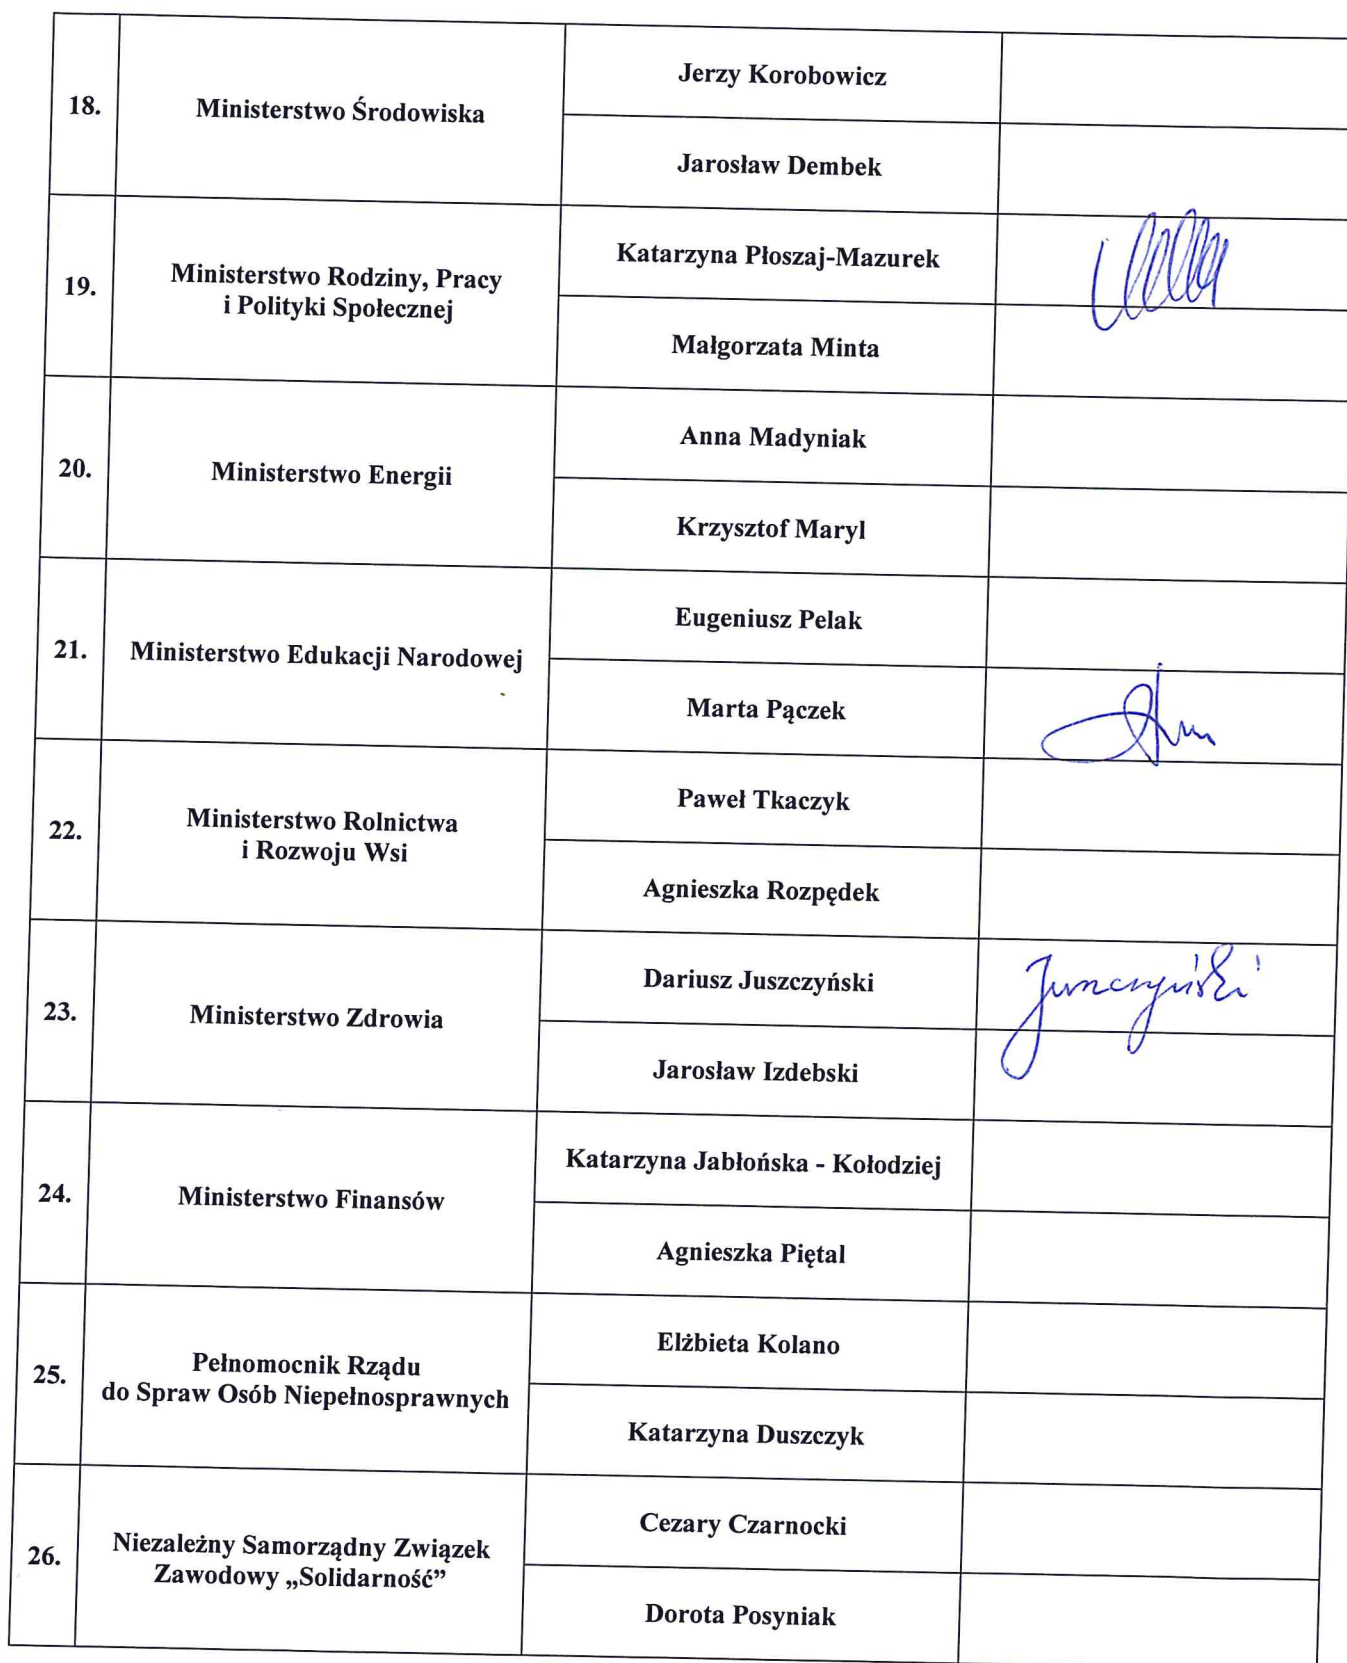 18.
Ministerstwo Środowiska
Jerzy Korobowicz
Jarosław Dembek
19.
Ministerstwo Rodziny, Pracy
i Polityki Społecznej
Katarzyna Płoszaj-Mazurek
Małgorzata Minta
20.
Ministerstwo Energii
Anna Madyniak
Krzysztof Maryl
21.
Ministerstwo Edukacji Narodowej
Eugeniusz Pelak
Marta Pączek
22.
Ministerstwo Rolnictwa
i Rozwoju Wsi
Paweł Tkaczyk
Agnieszka Rozpędek
23.
Ministerstwo Zdrowia
Dariusz Juszczyński
Juszczyński
Jarosław Izdebski
24.
Ministerstwo Finansów
Katarzyna Jabłońska - Kołodziej
Agnieszka Piętal
25.
Pełnomocnik Rządu
do Spraw Osób Niepełnosprawnych
Elżbieta Kolano
Katarzyna Duszczyk
26.
Niezależny Samorządny Związek
Zawodowy „Solidarność”
Cezary Czarnocki
Dorota Posyniak